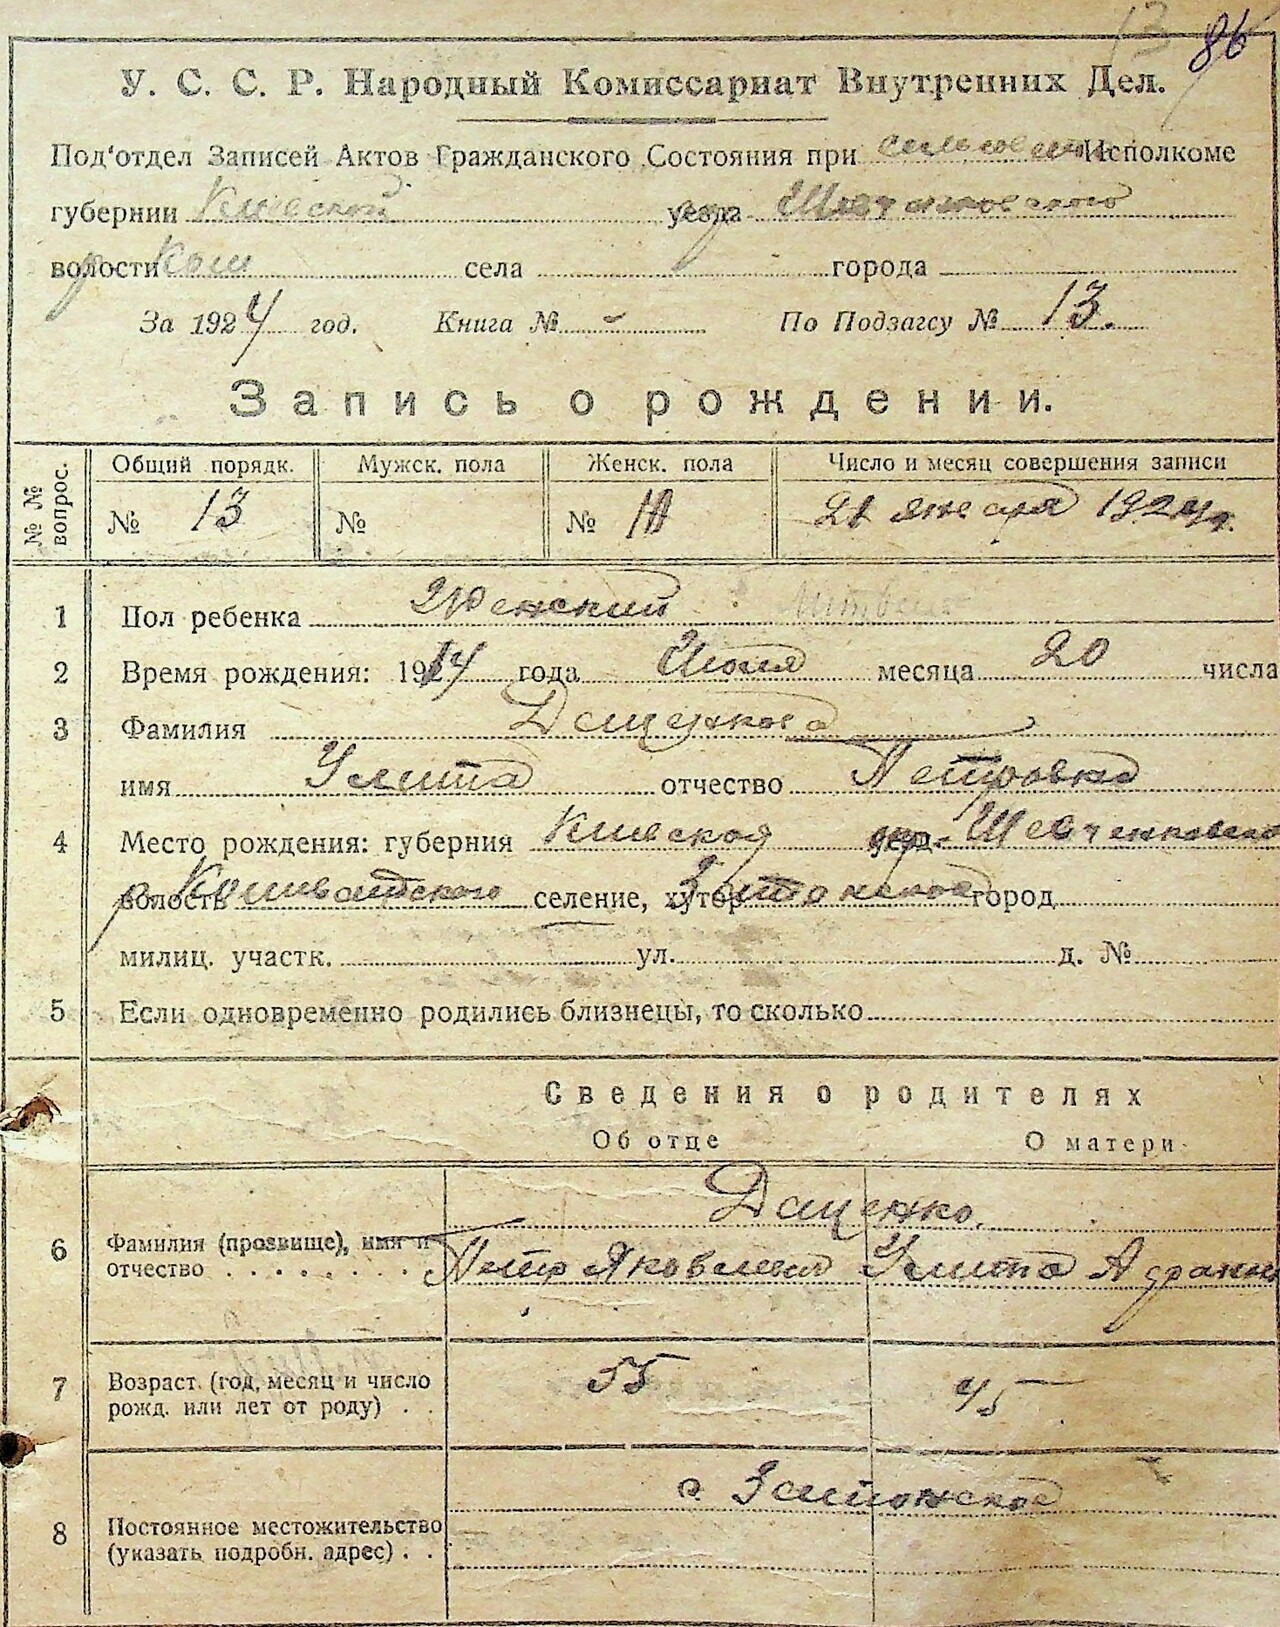 13 86
У. С. С. Р. Народный Комиссариат Внутренних Дел.
Под'отдел Записей Актов Гражданского Состояния при Исполкоме
губернии Киевской уезда Шевченковского
волости Кош села города
За 1924 год. Книга № - По Подзагсу № 13.
Запись о рождении.
№ № вопрос. Общий порядк. Мужск. пола Женск. пола Число и месяц совершения записи
№ 13 № № 21 января 1924 г.
1 Пол ребенка Женский
2 Время рождения: 1914 года Июля месяца 20 числа
3 Фамилия Даценкова
имя Улита отчество Петровна
4 Место рождения: губерния Киевская уезд. Шевченковского
р. волость Кошеватского селение, хутор город
милиц. участк. ул. д. №
5 Если одновременно родились близнецы, то сколько
Сведения о родителях
Об отце О матери
Даценко.
6 Фамилия (прозвище), имя и
отчество Петр Яковлевич Улита
7 Возраст (год, месяц и число 55 45
рожд. или лет от роду)
с.
8 Постоянное местожительство
(указать подробн. адрес)